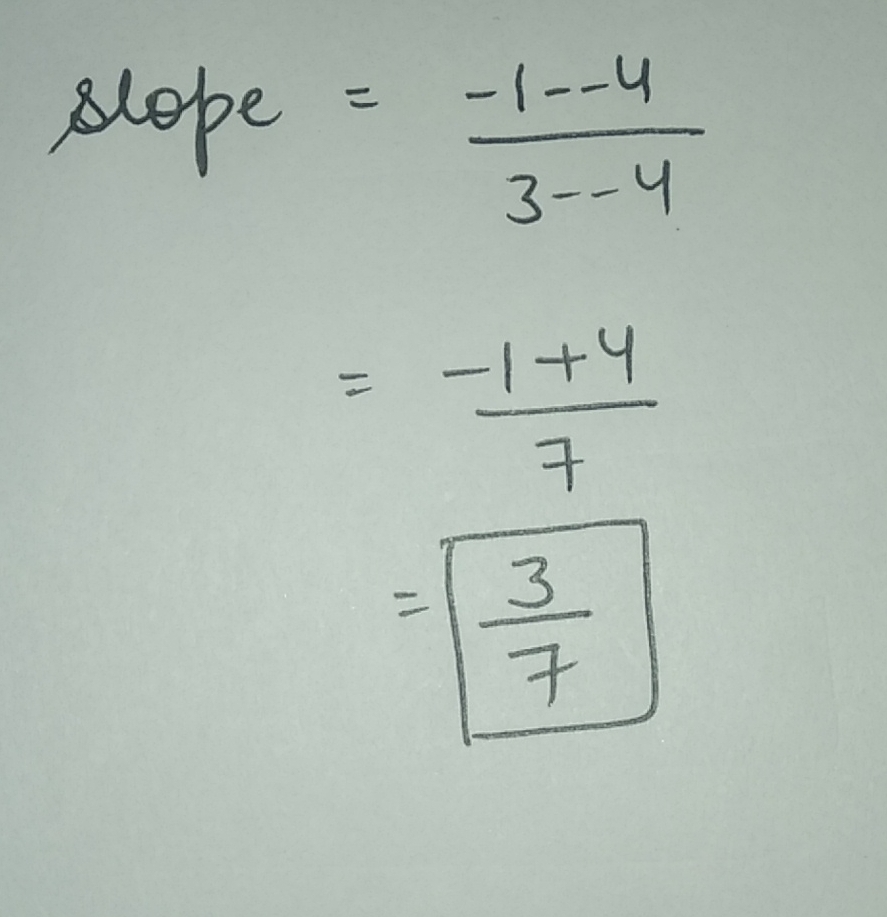 slope = -1--4
3--4
= -1+4
7
= 3
7